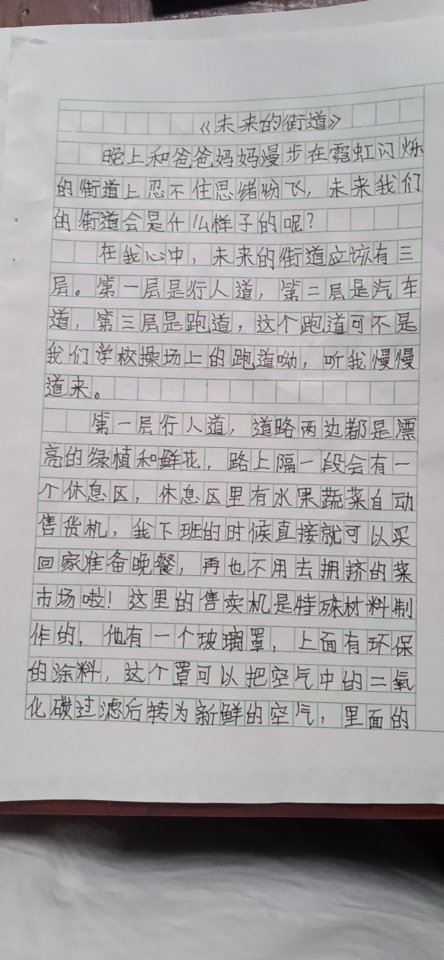 《未来的街道》
晚上和爸爸妈妈漫步在霓虹闪烁
的街道上忍不住思绪纷飞，未来我们
的街道会是什么样子的呢？
在我心中，未来的街道应该有三
层。第一层是行人道，第二层是汽车
道，第三层是跑道，这个跑道可不是
我们学校操场上的跑道呦，听我慢慢
道来。
第一层行人道，道路两边都是漂
亮的绿植和鲜花，路上隔一段会有一
个休息区，休息区里有水果蔬菜自动
售货机，我下班的时候直接就可以买
回家准备晚餐，再也不用去拥挤的菜
市场啦！这里的售卖机是特殊材料制
作的，他有一个玻璃罩，上面有环保
的涂料，这个罩可以把空气中的二氧
化碳过滤后转为新鲜的空气，里面的